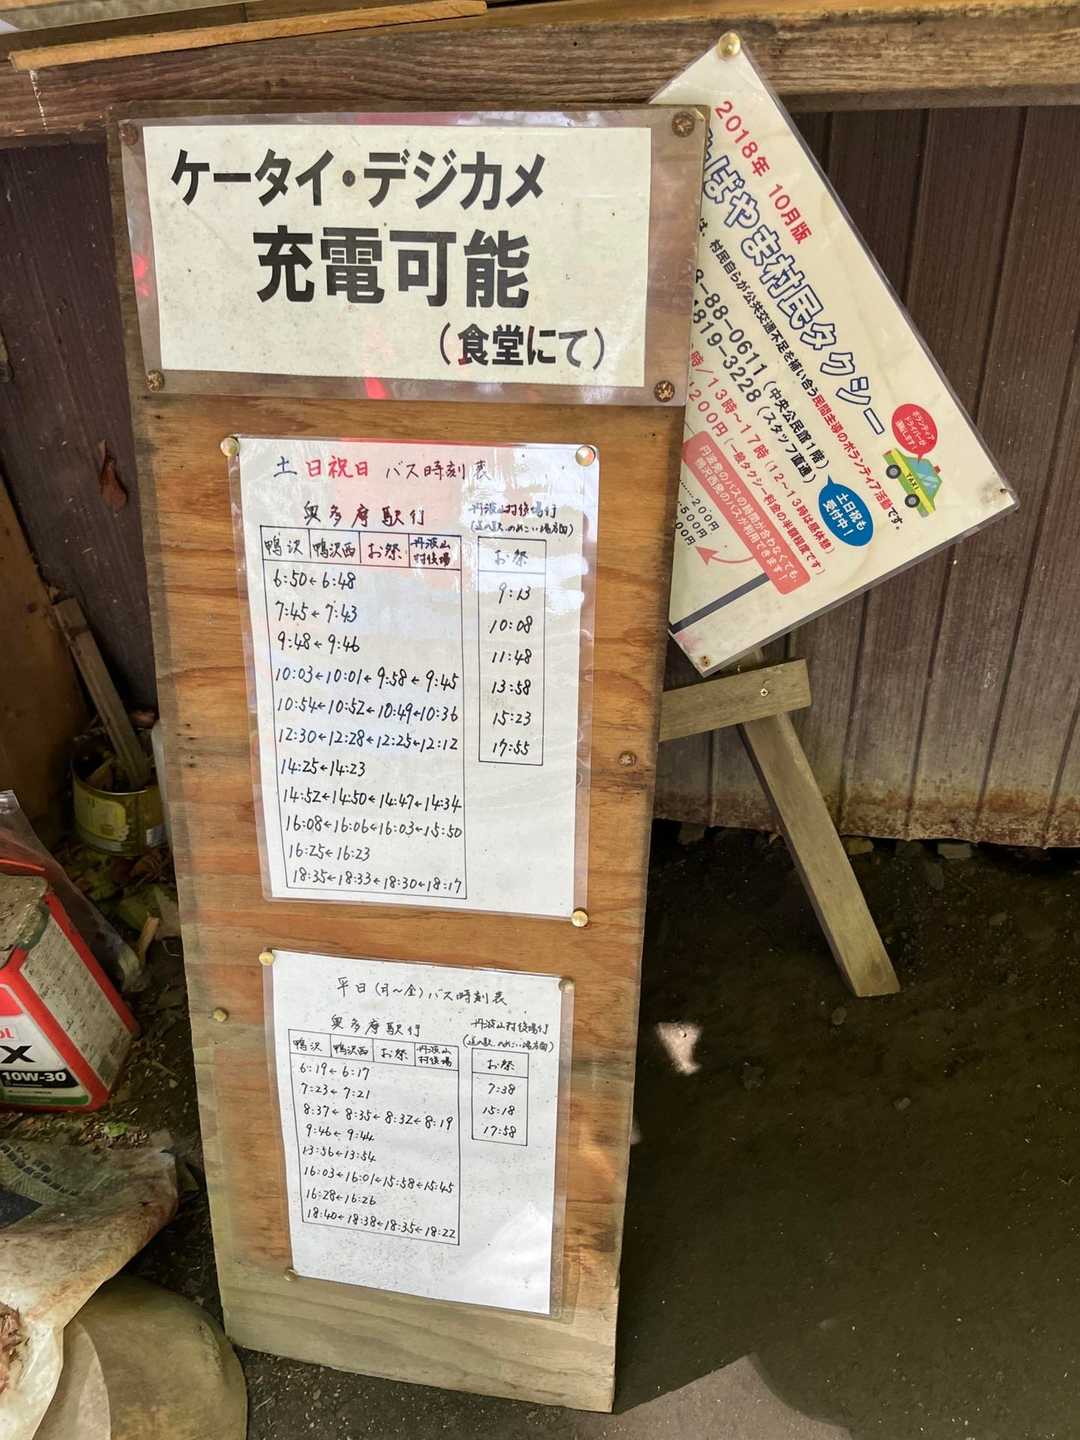 ケータイ・デジカメ
充電可能
（食堂にて）
土日祝日 バス時刻表
奥多摩駅行
鴨沢 鴨沢西 お祭 丹波山村役場
6:50←6:48
7:45←7:43
9:48←9:46
10:03←10:01←9:58←9:45
10:54←10:52←10:49←10:36
12:30←12:28←12:25←12:12
14:25←14:23
14:52←14:50←14:47←14:34
16:08←16:06←16:03←15:50
16:25←16:23
18:35←18:33←18:30←18:17
丹波山村役場行
(道の駅、のめこい湯方面)
お祭
9:13
10:08
11:48
13:58
15:23
17:55
平日(月～金)バス時刻表
奥多摩駅行
鴨沢 鴨沢西 お祭 丹波山村役場
6:19←6:17
7:23←7:21
8:37←8:35←8:32←8:19
9:46←9:44
13:56←13:54
16:03←16:01←15:58←15:45
16:28←16:26
18:40←18:38←18:35←18:22
丹波山村役場行
(道の駅、のめこい湯方面)
お祭
7:38
15:18
17:58
2018年 10月版
ばやま村民タクシー
は、村民自らが公共交通不足を補い合う民間主導のボランティア活動です。
8-88-0611（中央公民館1階）
819-3228（スタッフ直通）
時/13時～17時（12～13時は昼休憩）
200円（一般タクシー料金の半額程度です）
ボランティア
ドライバーが
運転します！
TAXI
土日祝も
受付中！
丹波発のバスの時間が合わなくても、
鴨沢西発のバスが利用できます！
200円
500円
000円
10W-30